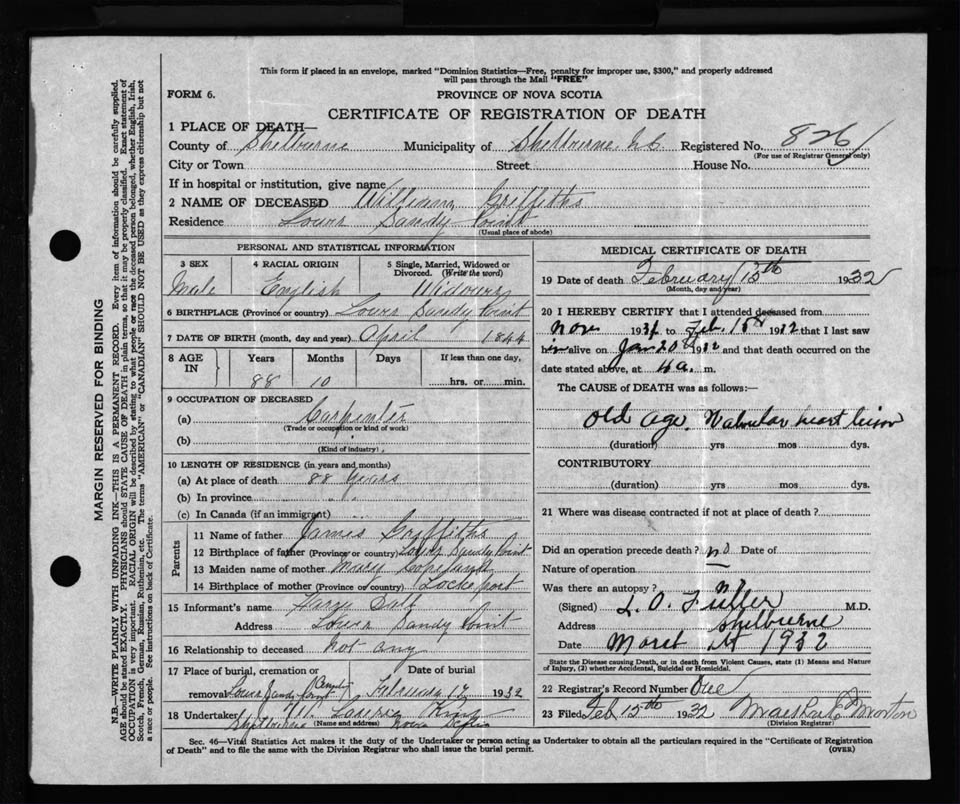 This form if placed in an envelope, marked "Dominion Statistics—Free, penalty for improper use, $300," and properly addressed
will pass through the Mail "FREE"
FORM 6.
PROVINCE OF NOVA SCOTIA
CERTIFICATE OF REGISTRATION OF DEATH
1 PLACE OF DEATH—
County of Shelburne Municipality of Shelburne, N.S. Registered No. 826
(For use of Registrar General only)
City or Town Street House No.
If in hospital or institution, give name
2 NAME OF DECEASED William Griffiths
Residence Lower Sandy Point
(Usual place of abode)
PERSONAL AND STATISTICAL INFORMATION
3 SEX 4 RACIAL ORIGIN 5 Single, Married, Widowed or Divorced. (Write the word)
Male English Widower
6 BIRTHPLACE (Province or country) Lower Sandy Point
7 DATE OF BIRTH (month, day and year) April 1844
8 AGE IN Years Months Days If less than one day,
88 10 hrs. or min.
9 OCCUPATION OF DECEASED
(a) Carpenter
(Trade or occupation or kind of work)
(b)
(Kind of industry)
10 LENGTH OF RESIDENCE (in years and months)
(a) At place of death 88 years
(b) In province " "
(c) In Canada (if an immigrant)
Parents
11 Name of father James Griffiths
12 Birthplace of father (Province or country) Lower Sandy Point
13 Maiden name of mother Mary
14 Birthplace of mother (Province or country) Lockeport
15 Informant's name
Address Lower Sandy Point
16 Relationship to deceased Not any
17 Place of burial, cremation or removal Lower Sandy Point Date of burial February 17 1932
18 Undertaker
(Name and address) Shelburne Nova Scotia
MEDICAL CERTIFICATE OF DEATH
19 Date of death February 15th 1932
(Month, day and year)
20 I HEREBY CERTIFY that I attended deceased from
Nov 1931 to Feb. 15th 1932 that I last saw
him alive on Jan 20th 1932 and that death occurred on the
date stated above, at 4 a. m.
The CAUSE OF DEATH was as follows:—
Old age. Valvular heart lesion
(duration) yrs mos dys.
CONTRIBUTORY
(duration) yrs mos dys.
21 Where was disease contracted if not at place of death?
Did an operation precede death? no Date of
Nature of operation —
Was there an autopsy? no
(Signed) L. O. Fuller M.D.
Address Shelburne
Date 1st 1932
State the Disease causing Death, or in death from Violent Causes, state (1) Means and Nature
of Injury, (2) whether Accidental, Suicidal or Homicidal.
22 Registrar's Record Number One
23 Filed Feb 15th 1932 Morton
(Division Registrar)
Sec. 46—Vital Statistics Act makes it the duty of the Undertaker or person acting as Undertaker to obtain all the particulars required in the "Certificate of Registration
of Death" and to file the same with the Division Registrar who shall issue the burial permit.
(OVER)
MARGIN RESERVED FOR BINDING
N.B.—WRITE PLAINLY WITH UNFADING INK—THIS IS A PERMANENT RECORD. Every item of information should be carefully supplied.
AGE should be stated EXACTLY. PHYSICIANS should STATE CAUSE OF DEATH in plain terms, so that it may be properly classified. Exact statement of
OCCUPATION is very important. RACIAL ORIGIN will be described by stating to what people or race the deceased person belonged, whether English, Irish,
Scotch, French, German, Russian, Ruthenian, etc. The terms "AMERICAN" or "CANADIAN" SHOULD NOT BE USED as they express citizenship but not
a race or people. See instructions on back of Certificate.